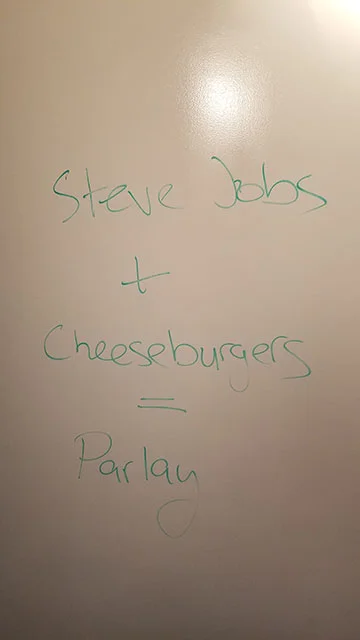 Steve Jobs
+
Cheeseburgers
=
Parlay